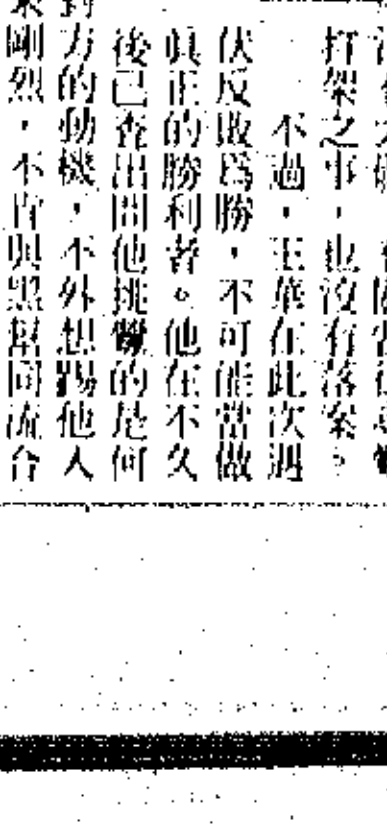 打架之事，也沒有落案。
不過，王華在此次遇
伏反敗爲勝，不可能當做
眞正的勝利者。他在不久
後已查出向他挑釁的是何
方的動機，不外想踢他人
剛烈，不肯與黑幫同流合